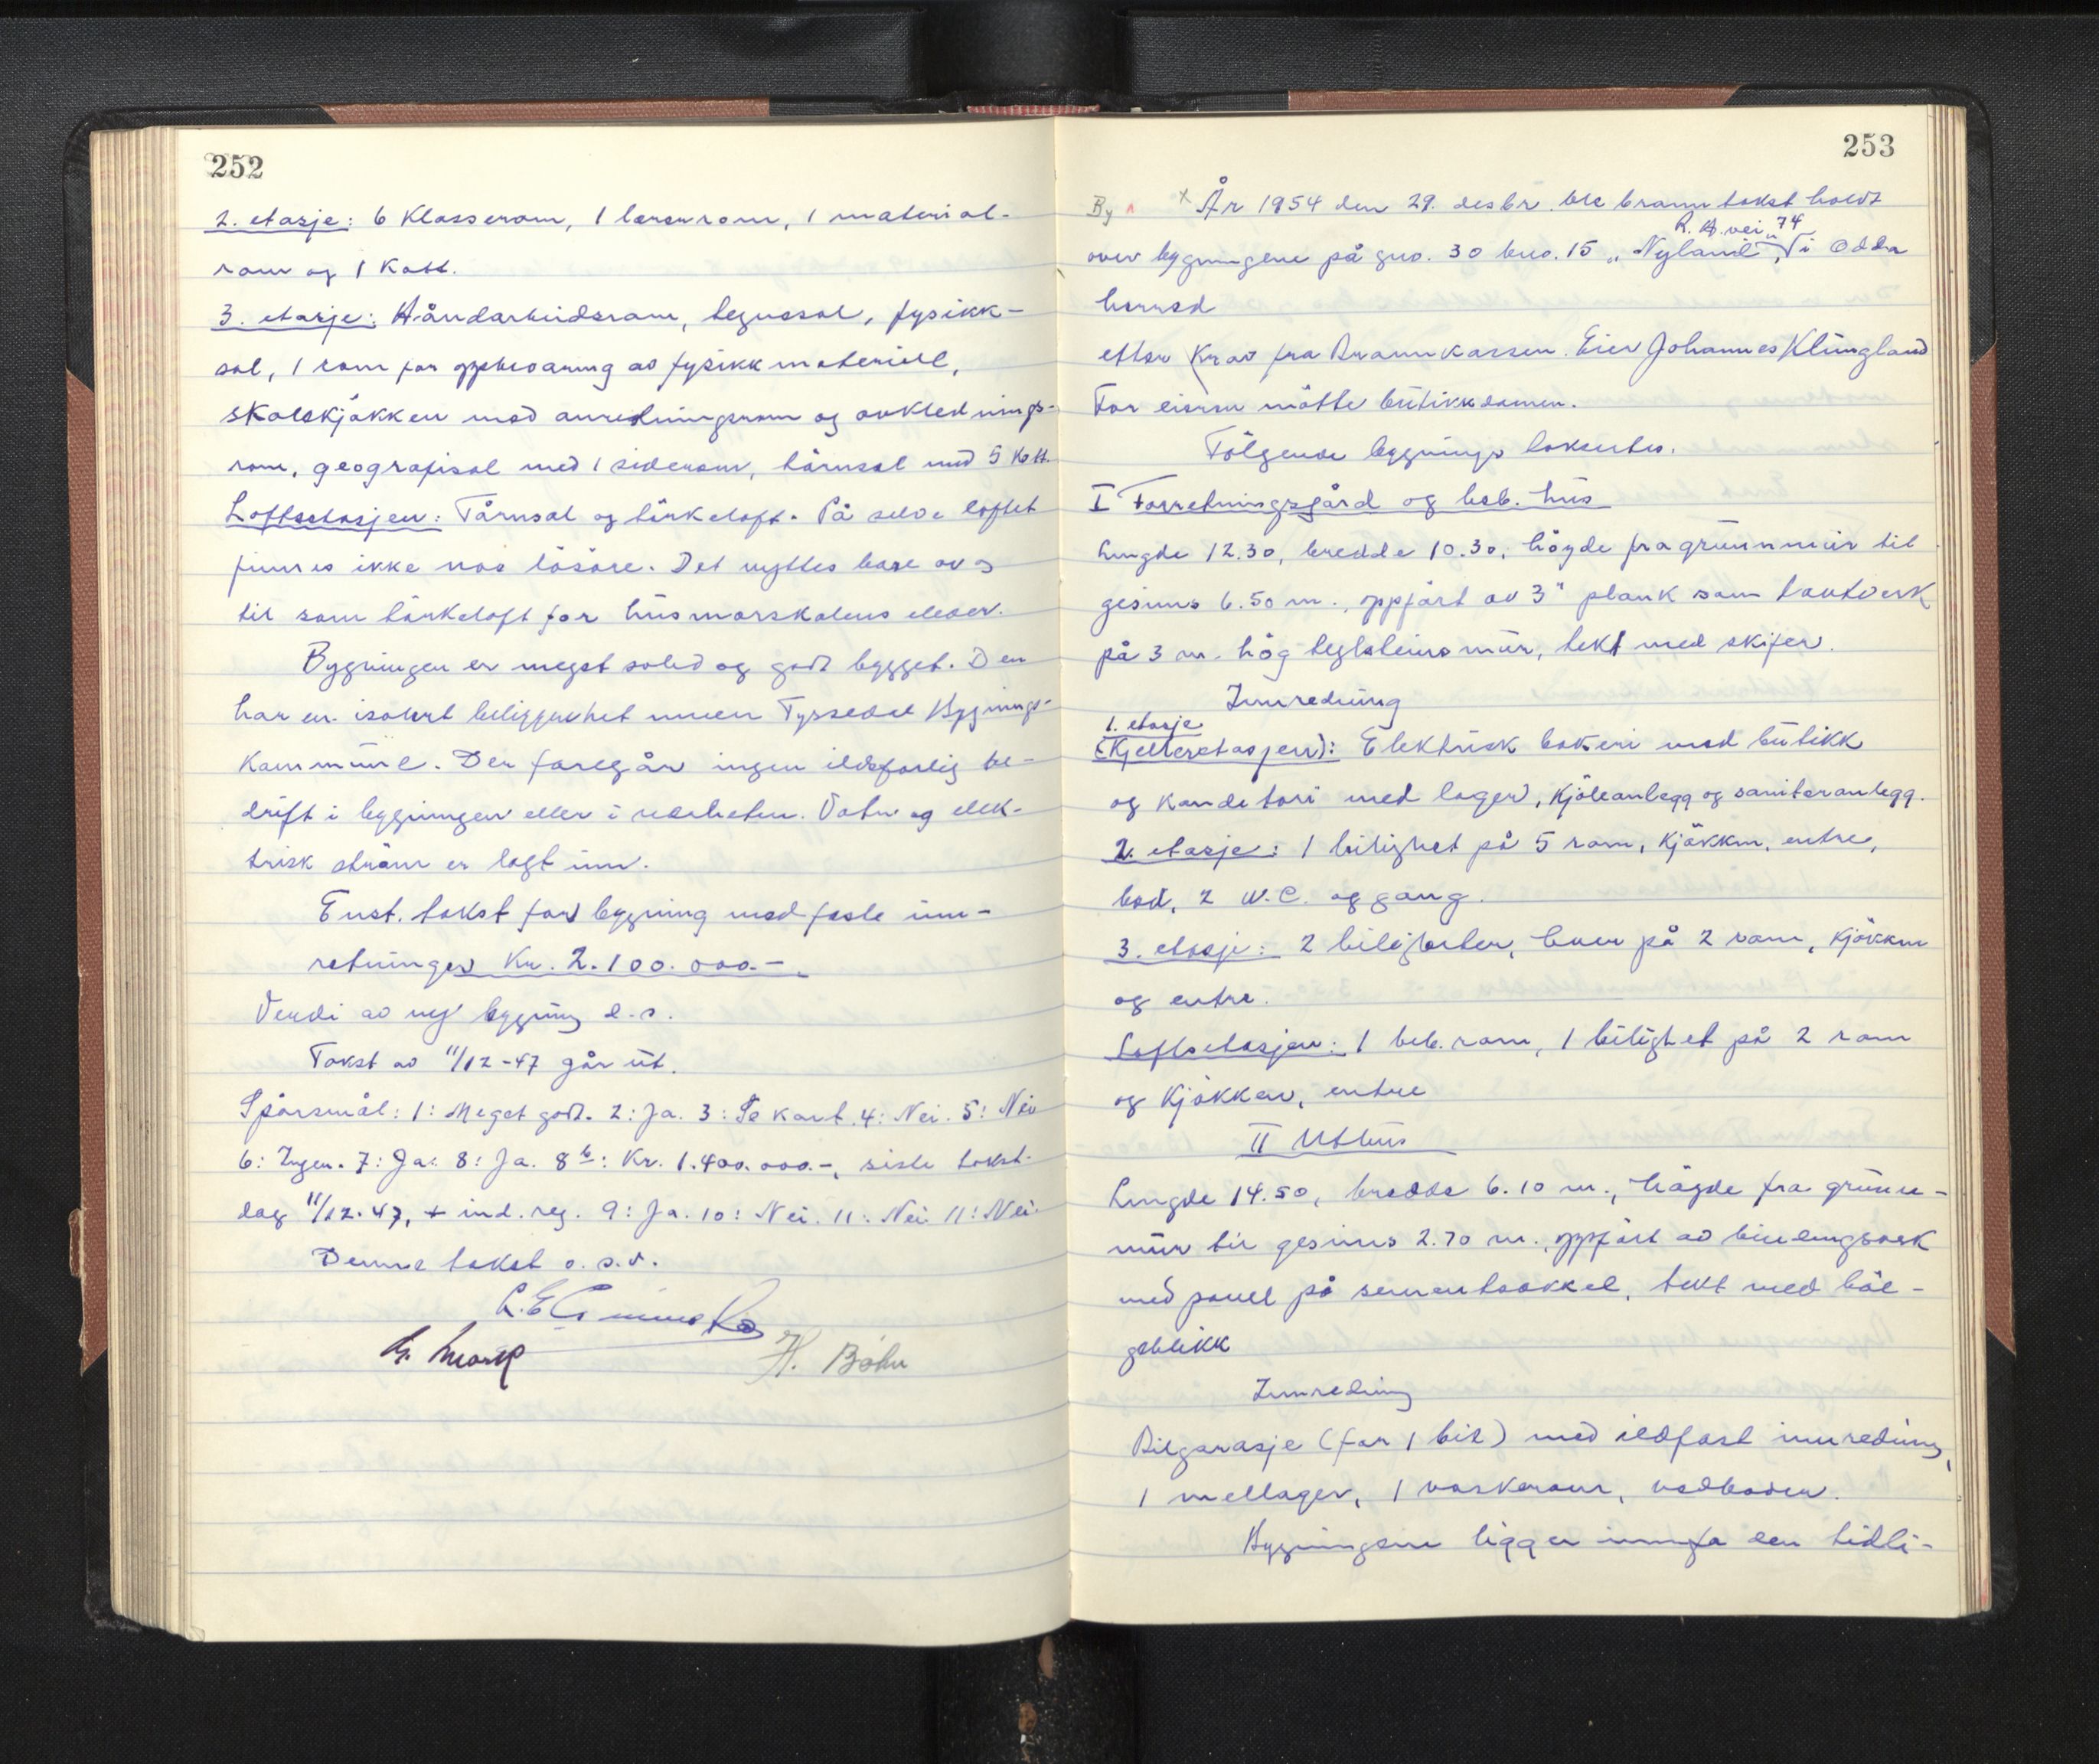 252
2. etasje: 6 Klasserom, 1 lærerrom, 1 material-
rom og 1 Kott.
3. etasje: Håndarbeidsrom, tegnesal, fysikk-
sal, 1 rom for oppbevaring av fysikkmateriell,
skolekjøkken med anretningsrom og avkled nings-
rom, geografisal med 1 siderom, tårnsal med 5 Kott.
Loftsetasjen: Tårnsal og tørkeloft. På selve loftet
finnes ikke noe løsøre. Det nyttes bare av og
til som tørkeloft for husmorskolens elever.
Bygningen er meget solid og godt bygget. Den
har en isolert beliggenhet innen Tyssedal Bygnings-
kommune. Der foregår ingen ildsfarlig be-
drift i bygningen eller i nærheten. Vatn og elek-
trisk strøm er lagt inn.
Enst. takst for bygning med faste inn-
retninger Kr. 2.100.000.-
Verdi av ny bygning d.s.
Takst av 11/12-47 går ut.
Spørsmål: 1: Meget godt. 2: Ja. 3: Se kart. 4: Nei. 5: Nei
6: Ingen. 7: Ja. 8: Ja. 8 b: Kr. 1.400.000.-, siste takst-
dag 11/12-47, + ind. reg. 9: Ja. 10: Nei. 11: Nei 11: Nei.
Denne takst o.s.v.
H. Bøhn
253
By x År 1954 den 29. desbr. ble branntakst holdt
R. A. vei 74
over bygningene på gno. 30 bno. 15 „Nyland", i Odda
herred
etter Krav fra Brannkassen. Eier Johannes Klungland
For eieren møtte butikkdamen.
Følgende bygninger takseretes.
I Forretningsgård og beb. hus
Lengde 12.30, bredde 10.30, høyde fra grunnmur til
gesims 6.50 m., oppført av 3" plank som tautverk
på 3 m. høg teglsteins mur, tekt med skifer.
Innredning
1. etasje
(Kjelleretasjen): Elektrisk bakeri med butikk
og konditori med lager, Kjøleanlegg og saniteranlegg.
2. etasje: 1 leilighet på 5 rom, Kjøkken, entre,
bad, 2 W.C. og gang.
3. etasje: 2 leiligheter, hver på 2 rom, Kjøkken
og entre.
Loftsetasjen: 1 beb. rom, 1 leilighet på 2 rom
og Kjøkken, entre
II Uthus
Lengde 14.50, bredde 6.10 m., høyde fra grunn-
mur til gesims 2.70 m., oppført av bindingsverk
med panel på sementsokkel, tekt med bøl-
geblikk
Innredning
Bilgarasje (for 1 bil) med ildfast innredning,
1 mellager, 1 vaskerom, vedboder.
Bygningene ligger innafo den tidli-